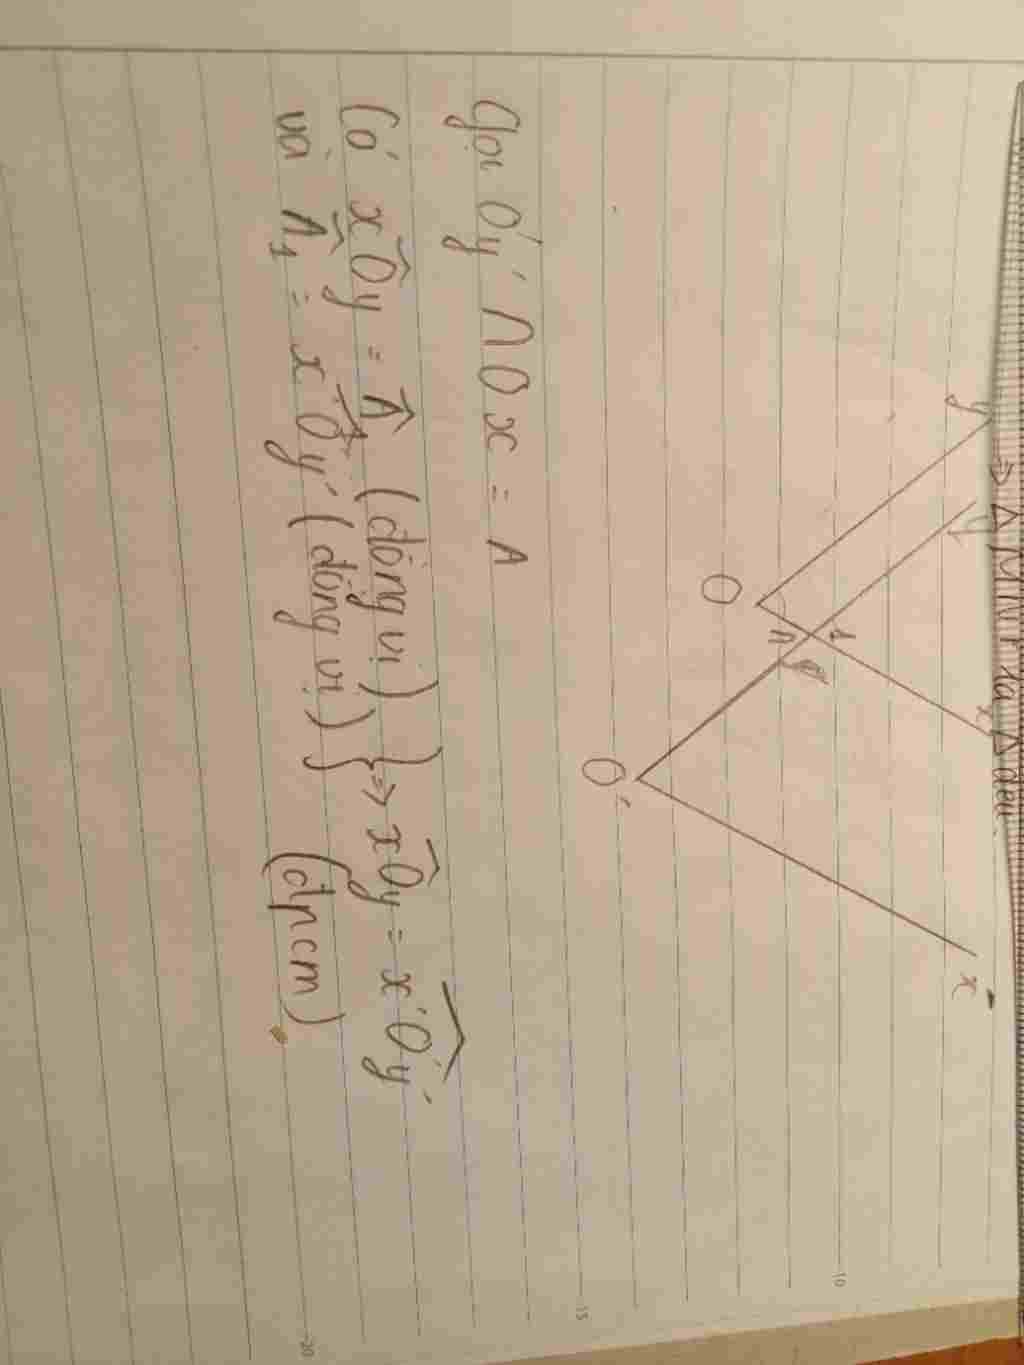 ⇒ Δ MNP là Δ đều.
y
y'
x
x'
A
1
O
O'
Gọi O'y' ∩ Ox = A
Có xÔy = Â₁ (đồng vị)
và Â₁ = x'Ô'y' (đồng vị)
} ⇒ xÔy = x'Ô'y'
(đpcm)
10
15
20